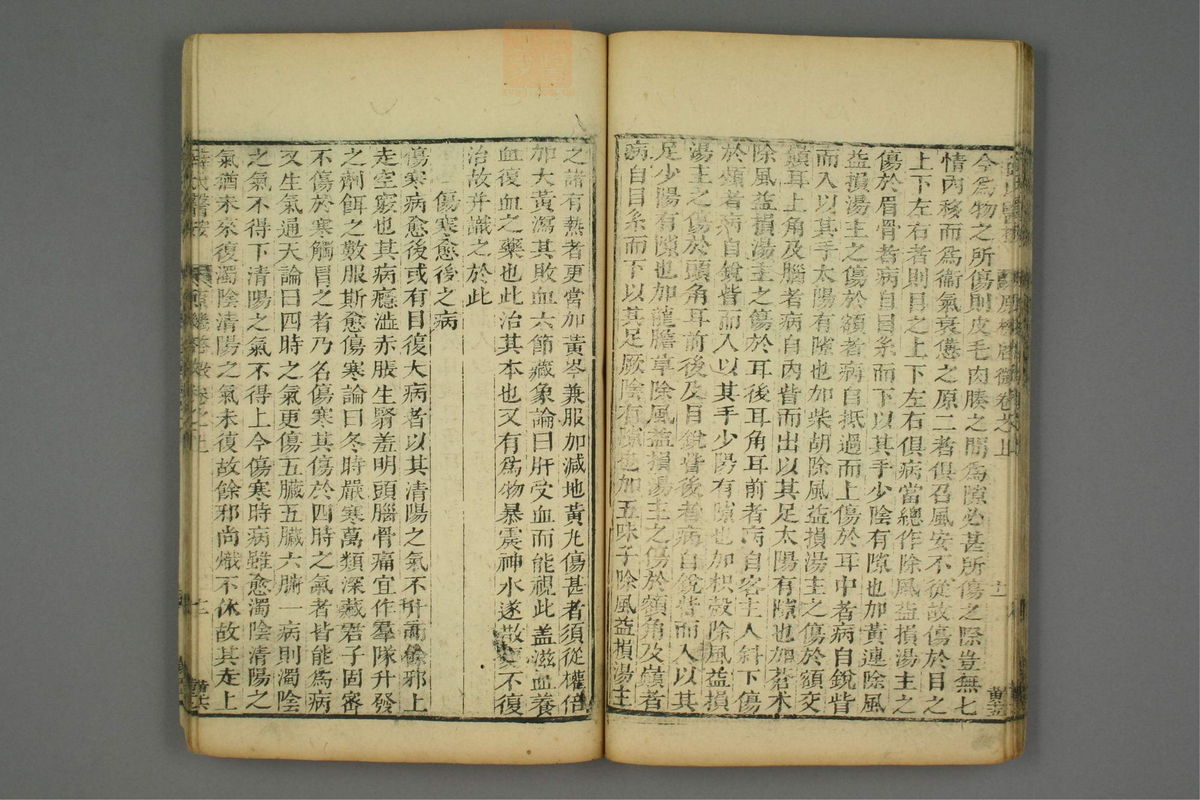 今爲物之所傷則皮毛肉腠之間爲隙必甚所傷之際豈無七
情內移而爲衞氣衰憊之原二者俱召風安不從故傷於目之
上下左右者則目之上下左右俱病當總作除風益損湯主之
傷於眉骨者病自目系而下以其手少陰有隙也加黃連除風
益損湯主之傷於額者病自抵過而上傷於耳中者病自銳眥
而入以其手太陽有隙也加柴胡除風益損湯主之傷於額交
巔耳上角及腦者病自內眥而出以其足太陽有隙也加蒼朮
除風益損湯主之傷於耳後耳角耳前者病自客主人斜下傷
於頰者病自銳眥而入以其手少陽有隙也加枳殼除風益損
湯主之傷於頭角耳前後及目銳眥後者病自銳眥而入以其
足少陽有隙也加龍膽草除風益損湯主之傷於額角及巔者
病自目系而下以其足厥陰有隙也加五味子除風益損湯主
之諸有熱者更當加黃岑兼服加減地黃丸傷甚者須從權倍
加大黃瀉其敗血六節藏象論曰肝受血而能視此蓋滋血養
血復血之藥也此治其本也又有爲物暴震神水遂散更不復
治故幷識之於此
傷寒愈後之病
傷寒病愈後或有目復大病者以其清陽之氣不升而餘邪上
走空竅也其病癮澁赤脹生腎羞明頭腦骨痛宜作羣隊升發
之劑餌之數服斯愈傷寒論曰冬時嚴寒萬類深藏君子固密
不傷於寒觸冒之者乃名傷寒其傷於四時之氣者皆能爲病
又生氣通天論曰四時之氣更傷五臟五臟六腑一病則濁陰
之氣不得下清陽之氣不得上今傷寒時病雖愈濁陰清陽之
氣猶未來復濁陰清陽之氣未復故餘邪尚熾不休故其走上